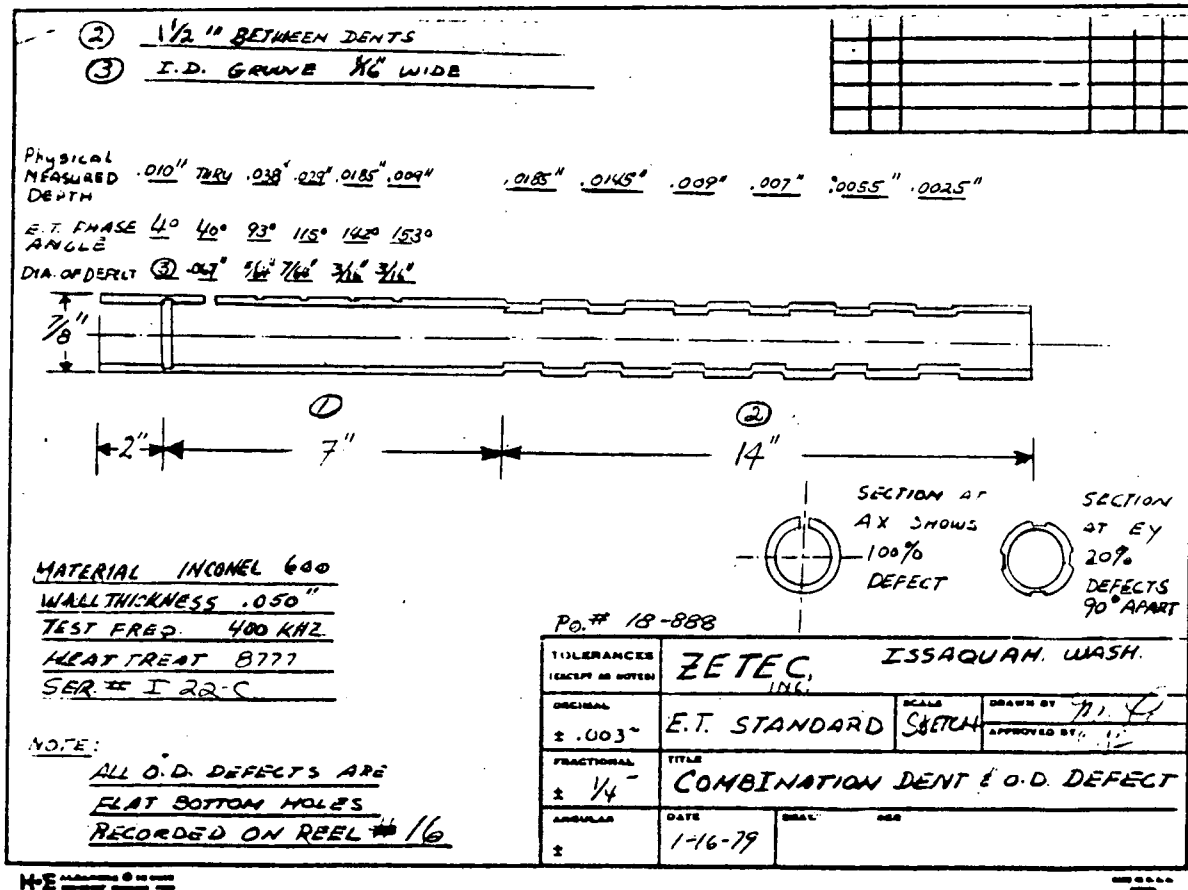 ② 1 1/2" BETWEEN DENTS
③ I.D. GROOVE 1/16" WIDE
Physical MEASURED DEPTH .010" THRU .038" .029" .0185" .009" .0185" .0145" .009" .007" .0055" .0025"
E.T. PHASE ANGLE 4° 40° 93° 115° 142° 153°
DIA. OF DEFECT ③ .067" 5/64" 7/64" 3/16" 3/16"
7/8"
① ②
2" 7" 14"
SECTION AT AX SHOWS 100% DEFECT
SECTION AT EY 20% DEFECTS 90° APART
MATERIAL INCONEL 600
WALL THICKNESS .050"
TEST FREQ. 400 KHZ
HEAT TREAT 8777
SER. # I 22-C
NOTE:
ALL O.D. DEFECTS ARE
FLAT BOTTOM HOLES
RECORDED ON REEL # 16
P.O.# 18-888
TOLERANCES (EXCEPT AS NOTED)
ZETEC, INC. ISSAQUAH. WASH.
DECIMAL ± .003"
E.T. STANDARD
SCALE SKETCH
DRAWN BY
APPROVED BY
FRACTIONAL ± 1/4"
TITLE COMBINATION DENT & O.D. DEFECT
ANGULAR ±
DATE 1-16-79